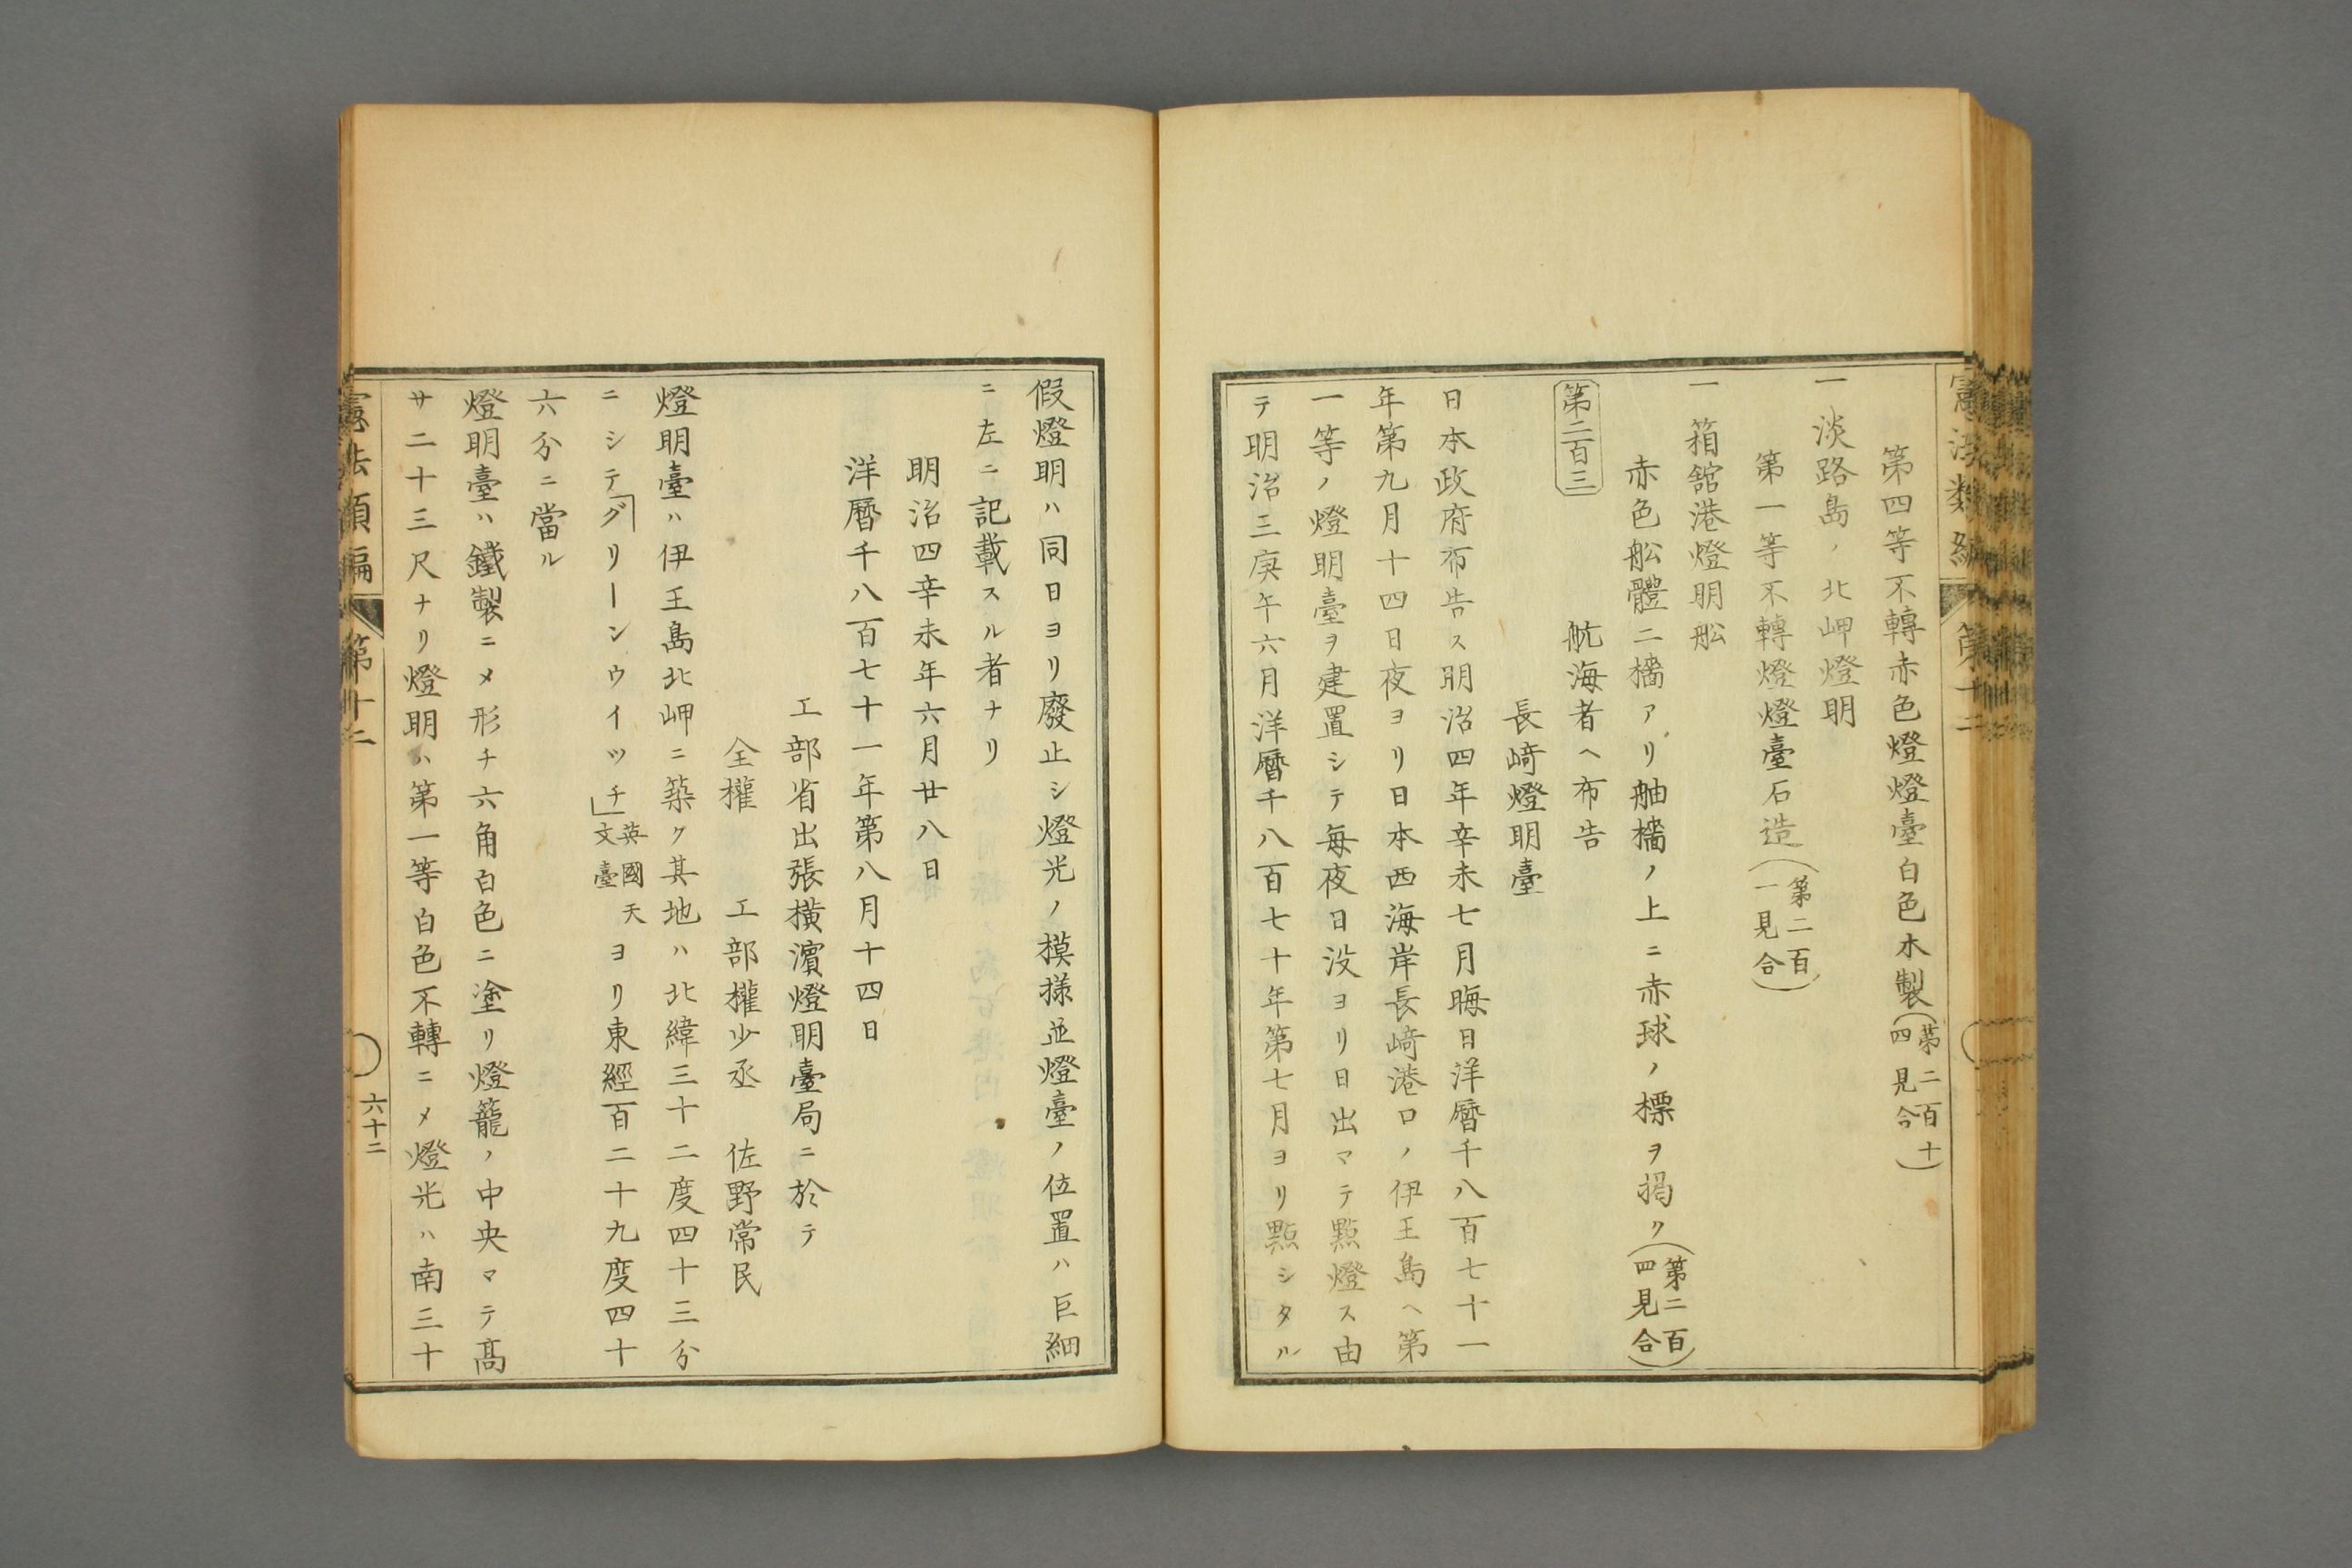 憲法類編 第十二
第四等不轉赤色燈燈臺白色木製(第二百十四見合)
一淡路島ノ北岬燈明
第一等不轉燈燈臺石造(第二百一見合)
一箱舘港燈明舩
赤色舩體二檣アリ舳檣ノ上ニ赤球ノ標ヲ揭ク(第二百四見合)
第二百三
航海者ヘ布告
長﨑燈明臺
日本政府布告ス明治四年辛未七月晦日洋曆千八百七十一
年第九月十四日夜ヨリ日本西海岸長﨑港口ノ伊王島ヘ第
一等ノ燈明臺ヲ建置シテ每夜日没ヨリ日出マテ點燈ス由
テ明治三庚午六月洋曆千八百七十年第七月ヨリ點シタル
假燈明ハ同日ヨリ廢止シ燈光ノ模樣並燈臺ノ位置ハ巨細
ニ左ニ記載スル者ナリ
明治四辛未年六月廿八日
洋曆千八百七十一年第八月十四日
工部省出張橫濵燈明臺局ニ於テ
仝權 工部權少丞 佐野常民
燈明臺ハ伊王島北岬ニ築ク其地ハ北緯三十二度四十三分
ニシテ「グリーンウイッチ」英國天文臺ヨリ東經百二十九度四十
六分ニ當ル
燈明臺ハ鐵製ニメ形チ六角白色ニ塗リ燈籠ノ中央マテ髙
サ二十三尺ナリ燈明ハ第一等白色不轉ニメ燈光ハ南三十
憲法類編 第十二 六十二